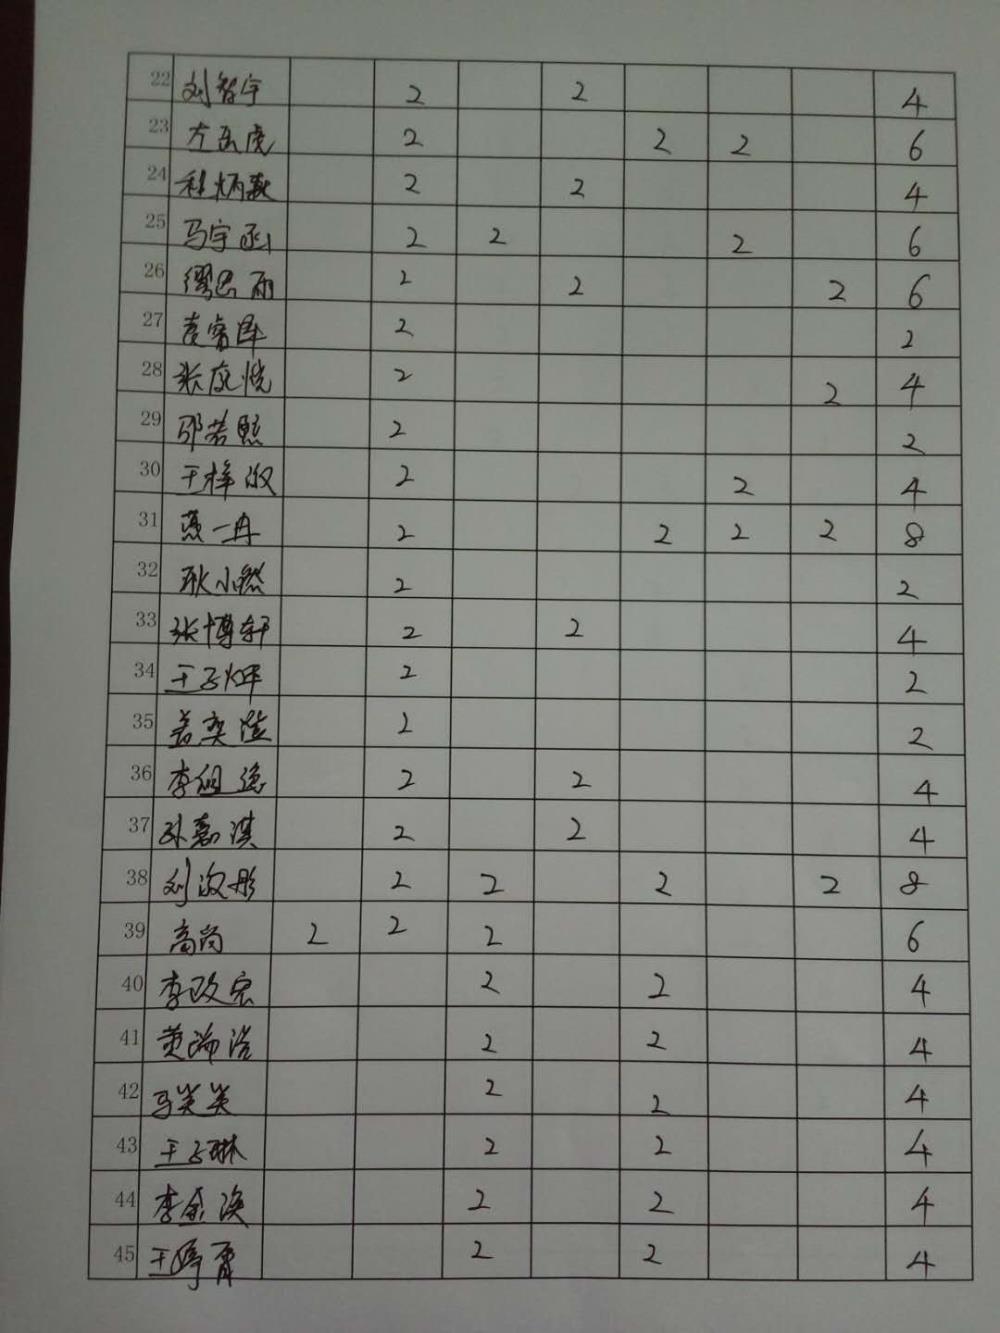 22 刘智宇 2 2 4
23 左玉虎 2 2 2 6
24 程炳歌 2 2 4
25 马宇函 2 2 2 6
26 缪思雨 2 2 2 6
27 袁睿 2 2
28 张应悦 2 2 4
29 邵若熙 2 2
30 王梓汝 2 2 4
31 聂一冉 2 2 2 2 8
32 耿小然 2 2
33 张博轩 2 2 4
34 王子烨 2 2
35 奕 2 2
36 李德 2 2 4
37 孙嘉淇 2 2 4
38 刘汶彤 2 2 2 2 8
39 高尚 2 2 2 6
40 李政宏 2 2 4
41 黄浩 2 2 4
42 马笑笑 2 2 4
43 王子琳 2 2 4
44 李金涣 2 2 4
45 王 2 2 4